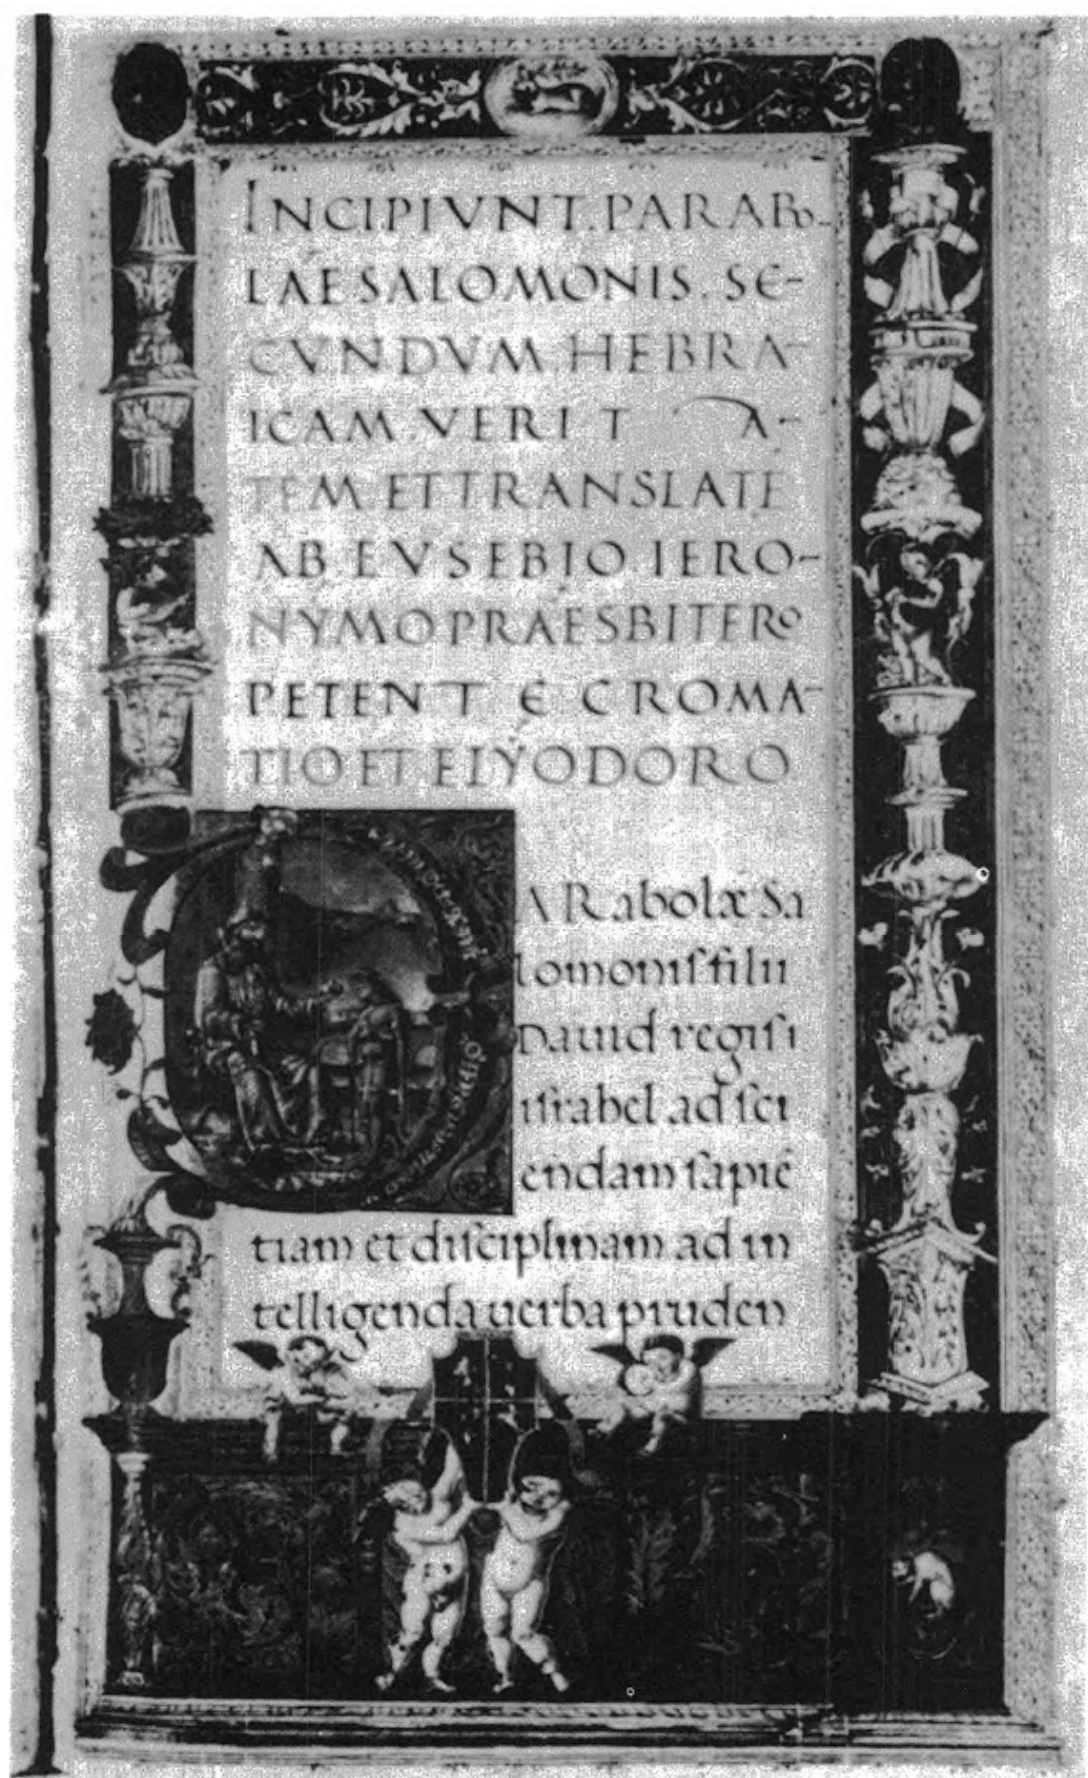 INCIPIVNT. PARABO-
LAE SALOMONIS. SE-
CVNDVM. HEBRA-
ICAM. VERIT A-
TEM. ET TRANSLATE
AB. EVSEBIO. IERO-
NYMO PRAESBITERO
PETENTE CROMA-
TIO ET. ELYODORO
A Rabolæ Sa
lomonis filii
Dauid regis i
israhel ad sci
endam sapiē
tiam et disciplinam ad in
telligenda uerba pruden